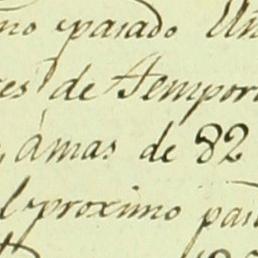 no pasado Un
es de Tempor
, ámas de 82
l proximo pas